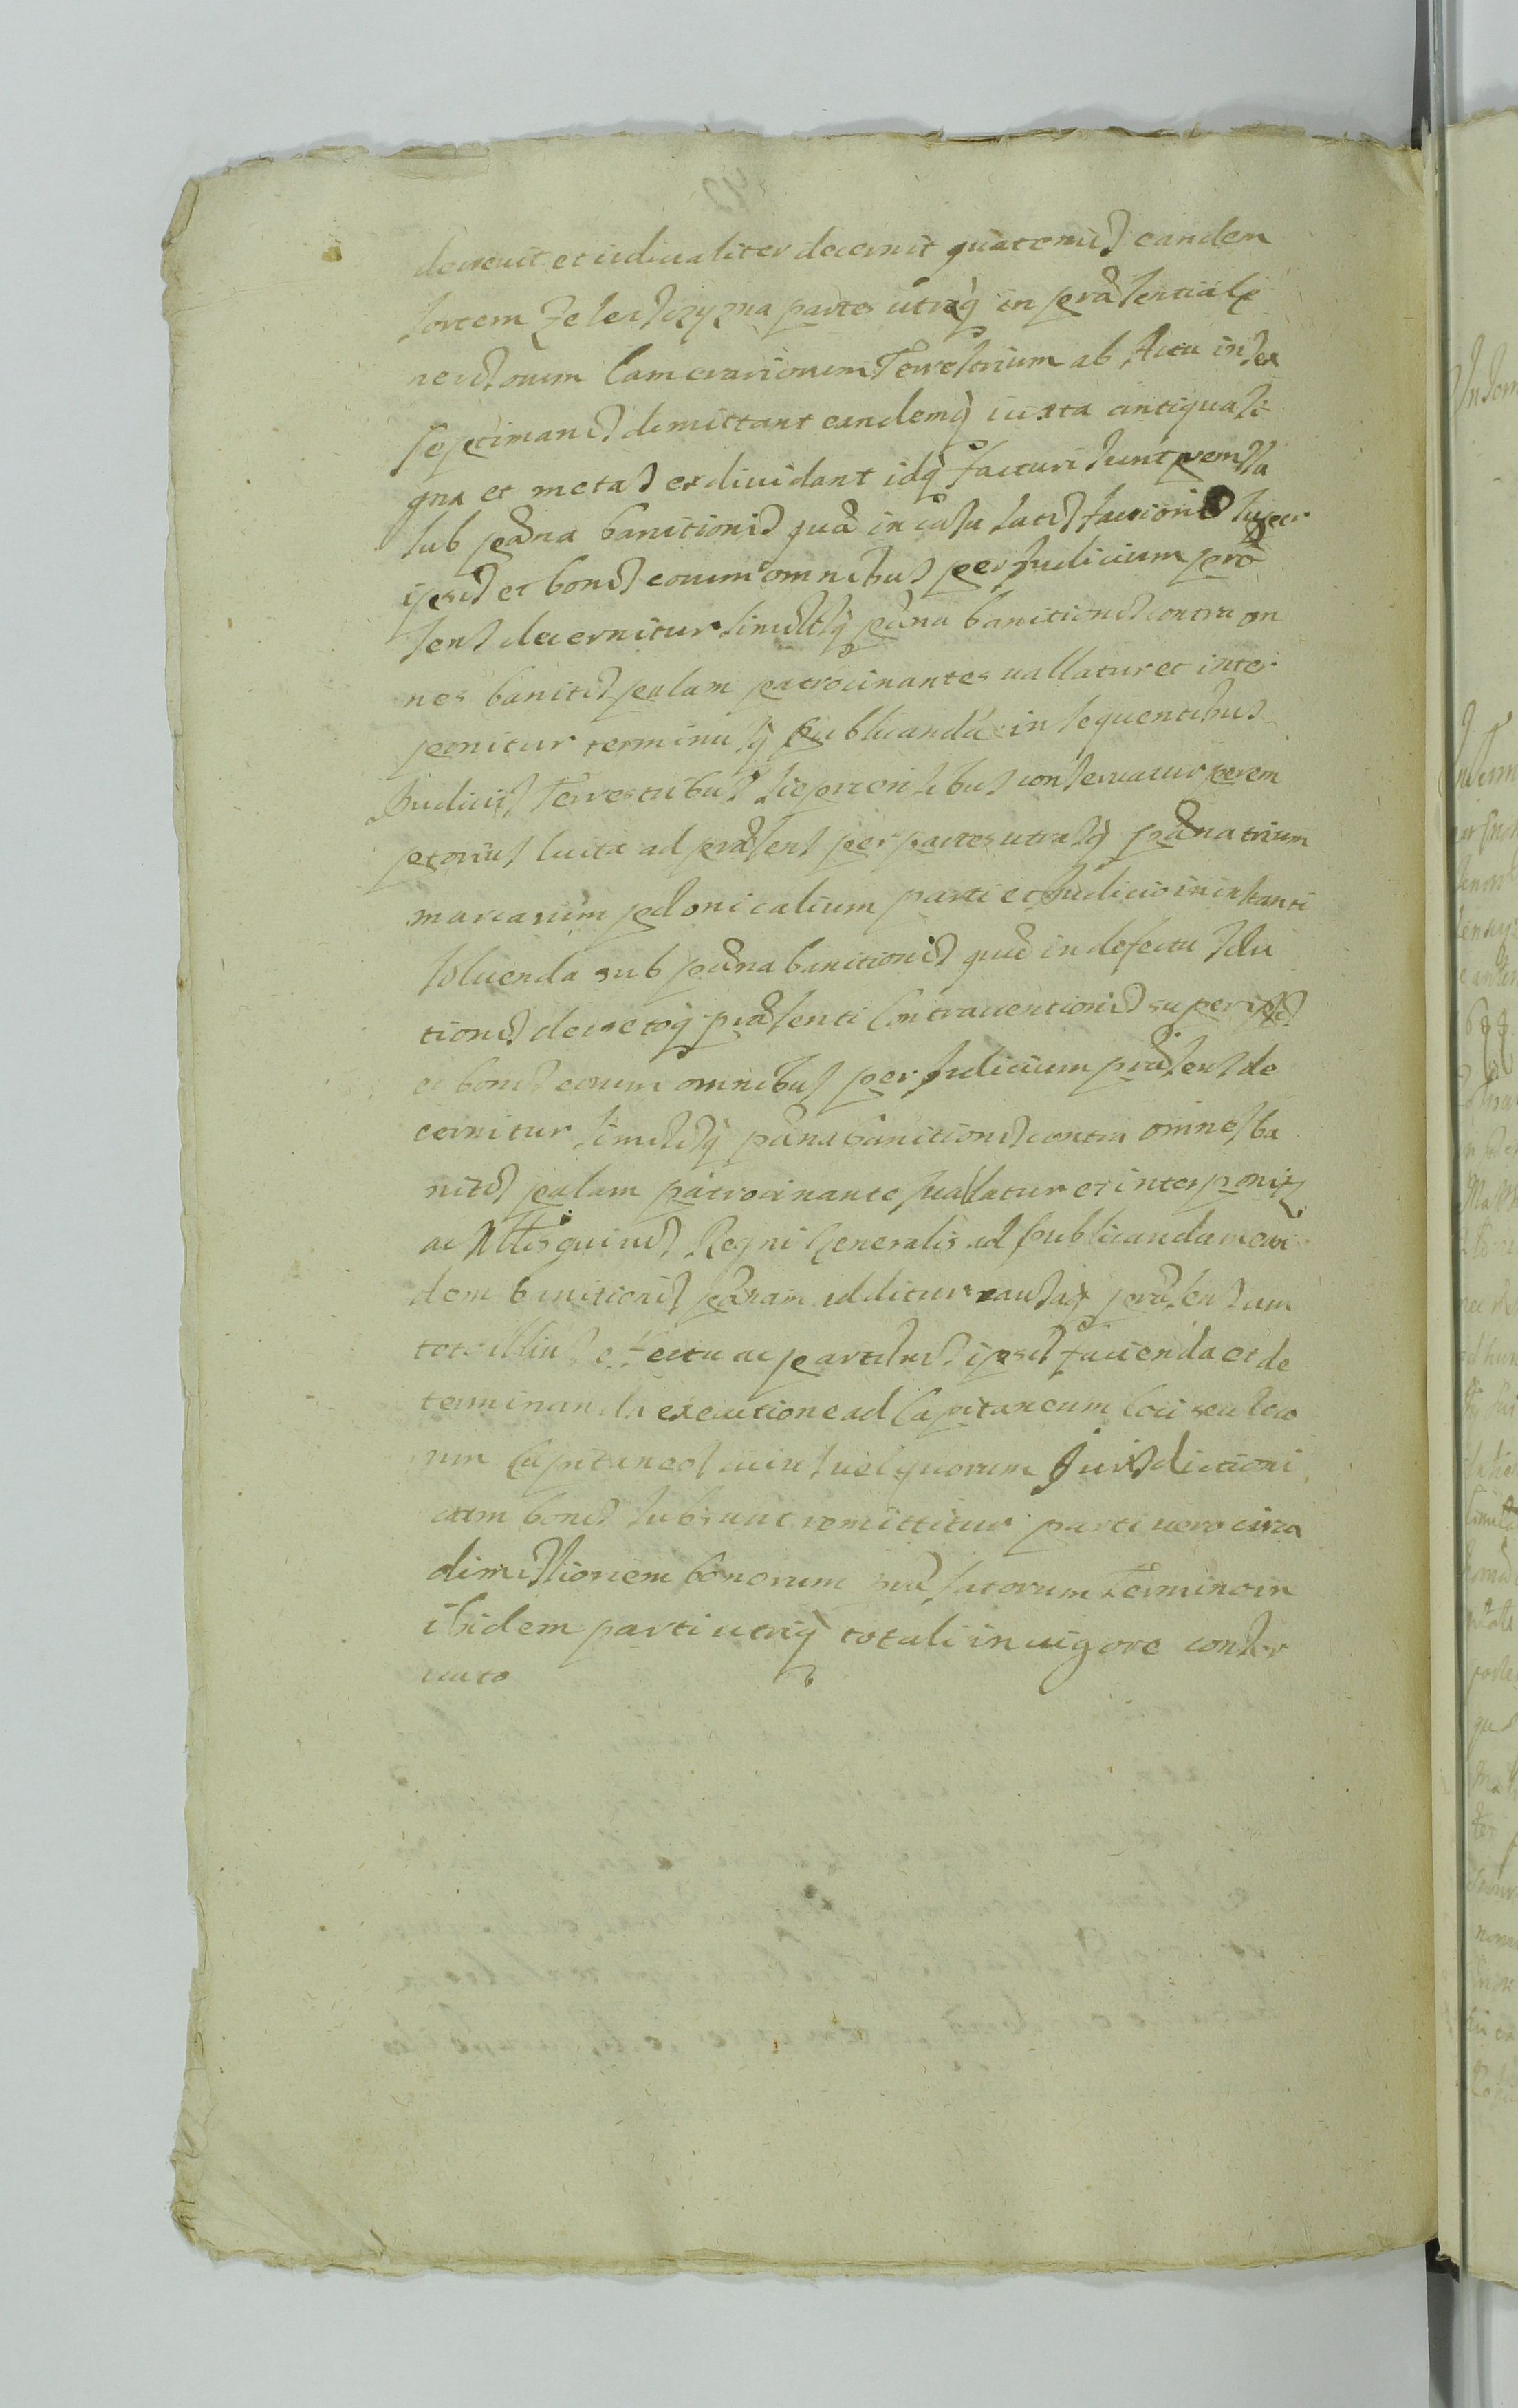 decreuit et iudicialiter decernit quatenus eandem
sortem Zeleszczyzna partes utræq in præsentia Ge
nerosorum Camerariorum Terrestrium ab Actu in sex
septimanis dimittant eandemq iuxta antiqua si
gna et metas ex diuidant idq facturi sunt
sub pæna banitionis quæ in casu satisfactionis super
ipsis et bonis eorum omnibus per Judicium præ
sens decernitur simulq pæna banitionis contra om
nes banitis palam patrocinantes uallatur et inter
ponitur terminusq publicandæ in sequentibus
Judiciis Terrestribus conseruatur perem
ptorius luita ad præsens per partes utrasq pæna trium
marcarum polonicalium parti et Judicio in instanti
soluenda sub pæna banitionis quæ in defectu solu
tionis decretoq præsenti Contrauentionis super ipsis
et bonis eorum omnibus per Judicium præsens de
cernitur simulq pæna banitionis contra omnes ba
nitis palam patrocinantes uallatur et interponitur
ac Mtlis quiuis Regni Generalis ad publicandam ean
dem banitionis pænam additur causaq præsens cum
toto illius effectu ac partibus ipsis facienda et de
terminanda executione ad Capitaneum loci seu loco
rum Capitaneos cuius uel quorum Jurisdictioni
bonis subsunt remittitur parti uero circa
dimissionem bonorum præfatorum Termino in
ibidem parti utriq totali in uigore conser
uato